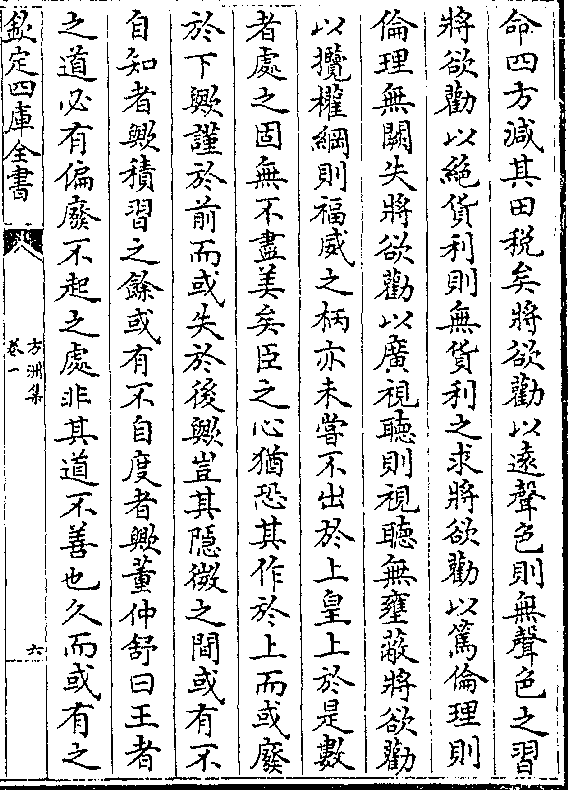 命四方減其田稅矣將欲勸以遠聲色則無聲色之習
將欲勸以絕貨利則無貨利之求將欲勸以篤倫理則
倫理無闕失將欲勸以廣視聽則視聽無壅蔽將欲勸
以攬權綱則福威之柄亦未嘗不出於上皇上於是數
者處之固無不盡美矣臣之心猶恐其作於上而或廢
於下歟謹於前而或失於後歟豈其隠微之間或有不
自知者歟積習之餘或有不自度者歟董仲舒曰王者
之道必有偏廢不起之處非其道不善也久而或有之
欽定四庫全書
方洲集
卷一
六